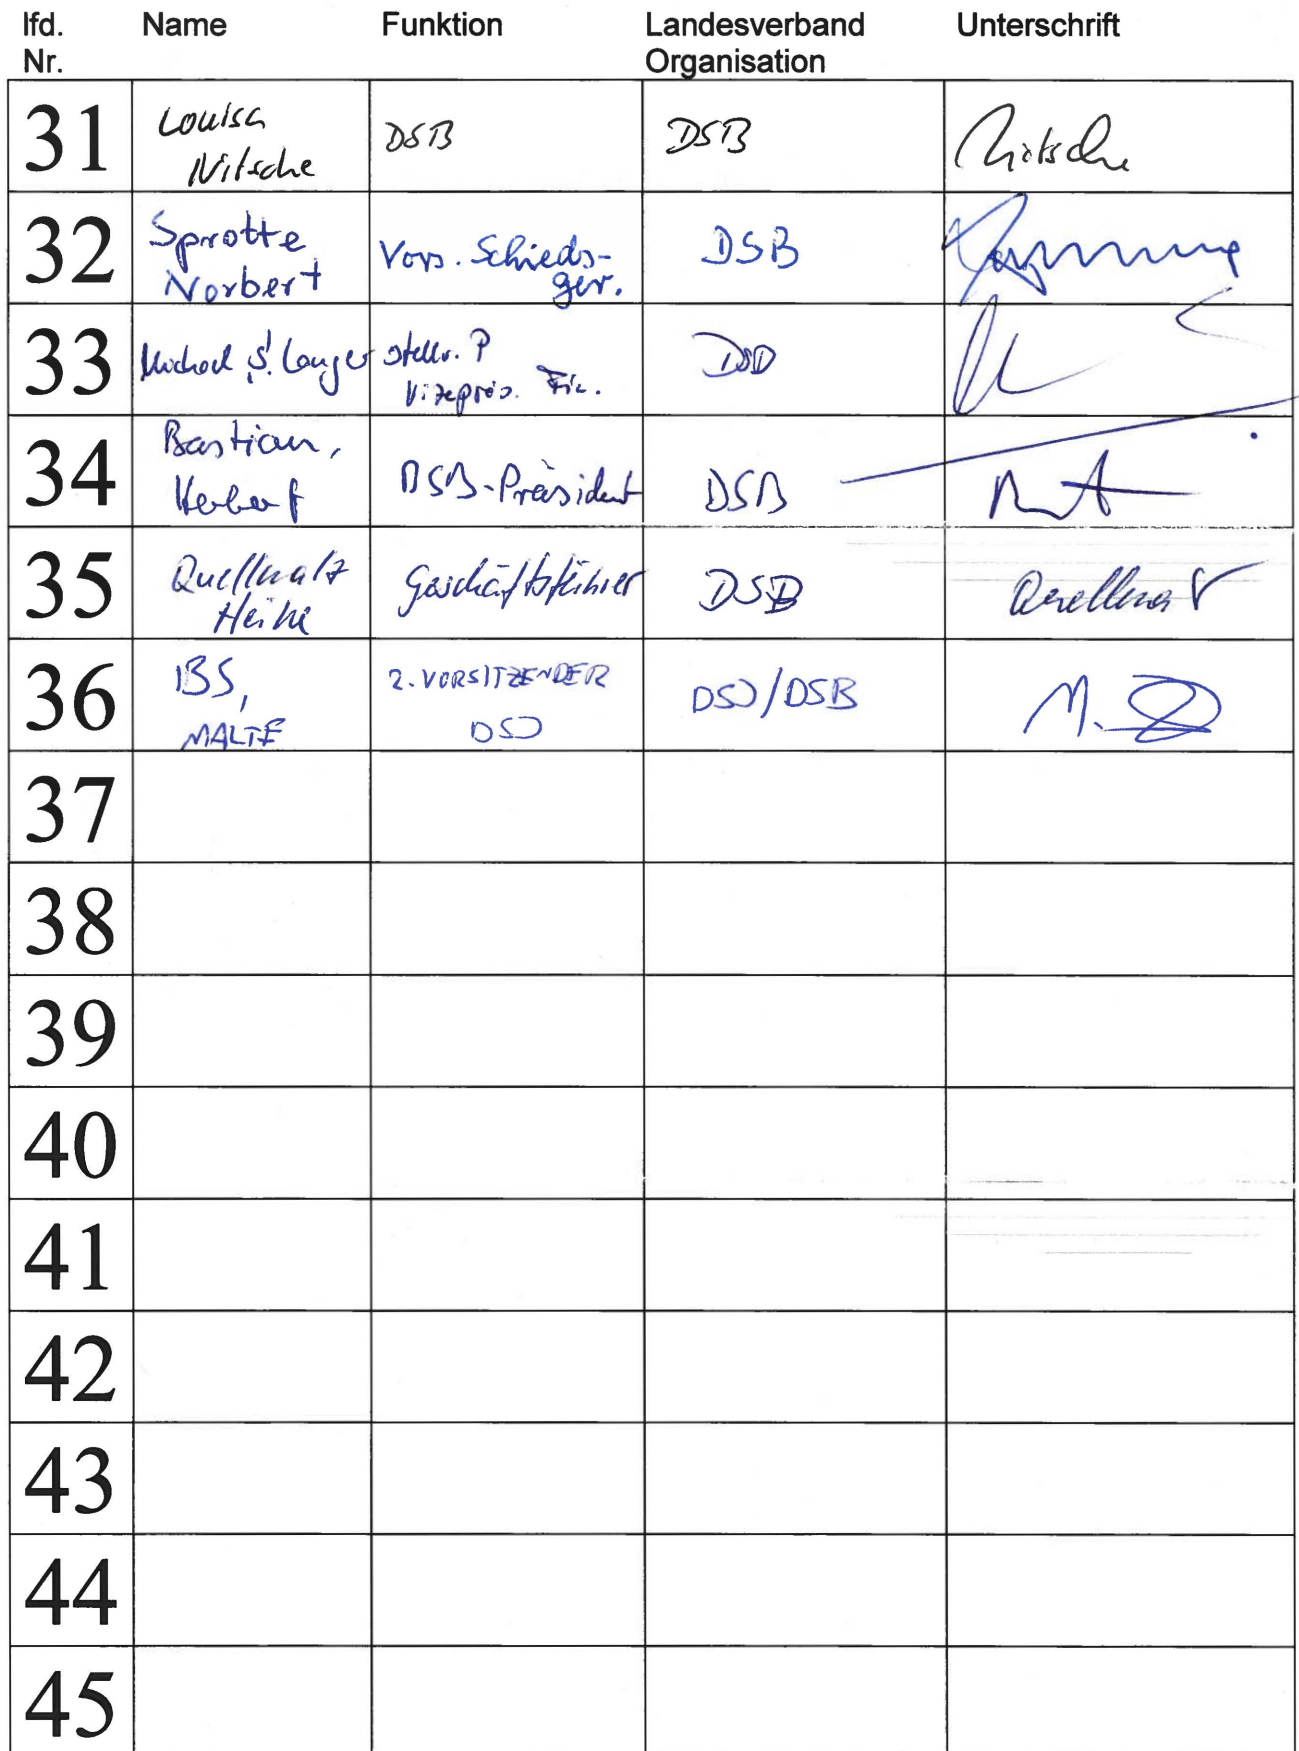 lfd. Nr. Name Funktion Landesverband Organisation Unterschrift
31 Louisa Nitsche DSB DSB Nitsche
32 Sprotte Norbert Vors. Schieds-ger. DSB
33 Michael S. Langer stellv. P Vizepräs. Fin. DSB
34 Bastian, Herbert DSB-Präsident DSB
35 Quellmalz Heike Geschäftsführer DSB Quellmalz
36 IBS, MALTE 2. VORSITZENDER DSJ DSJ/DSB M.
37
38
39
40
41
42
43
44
45